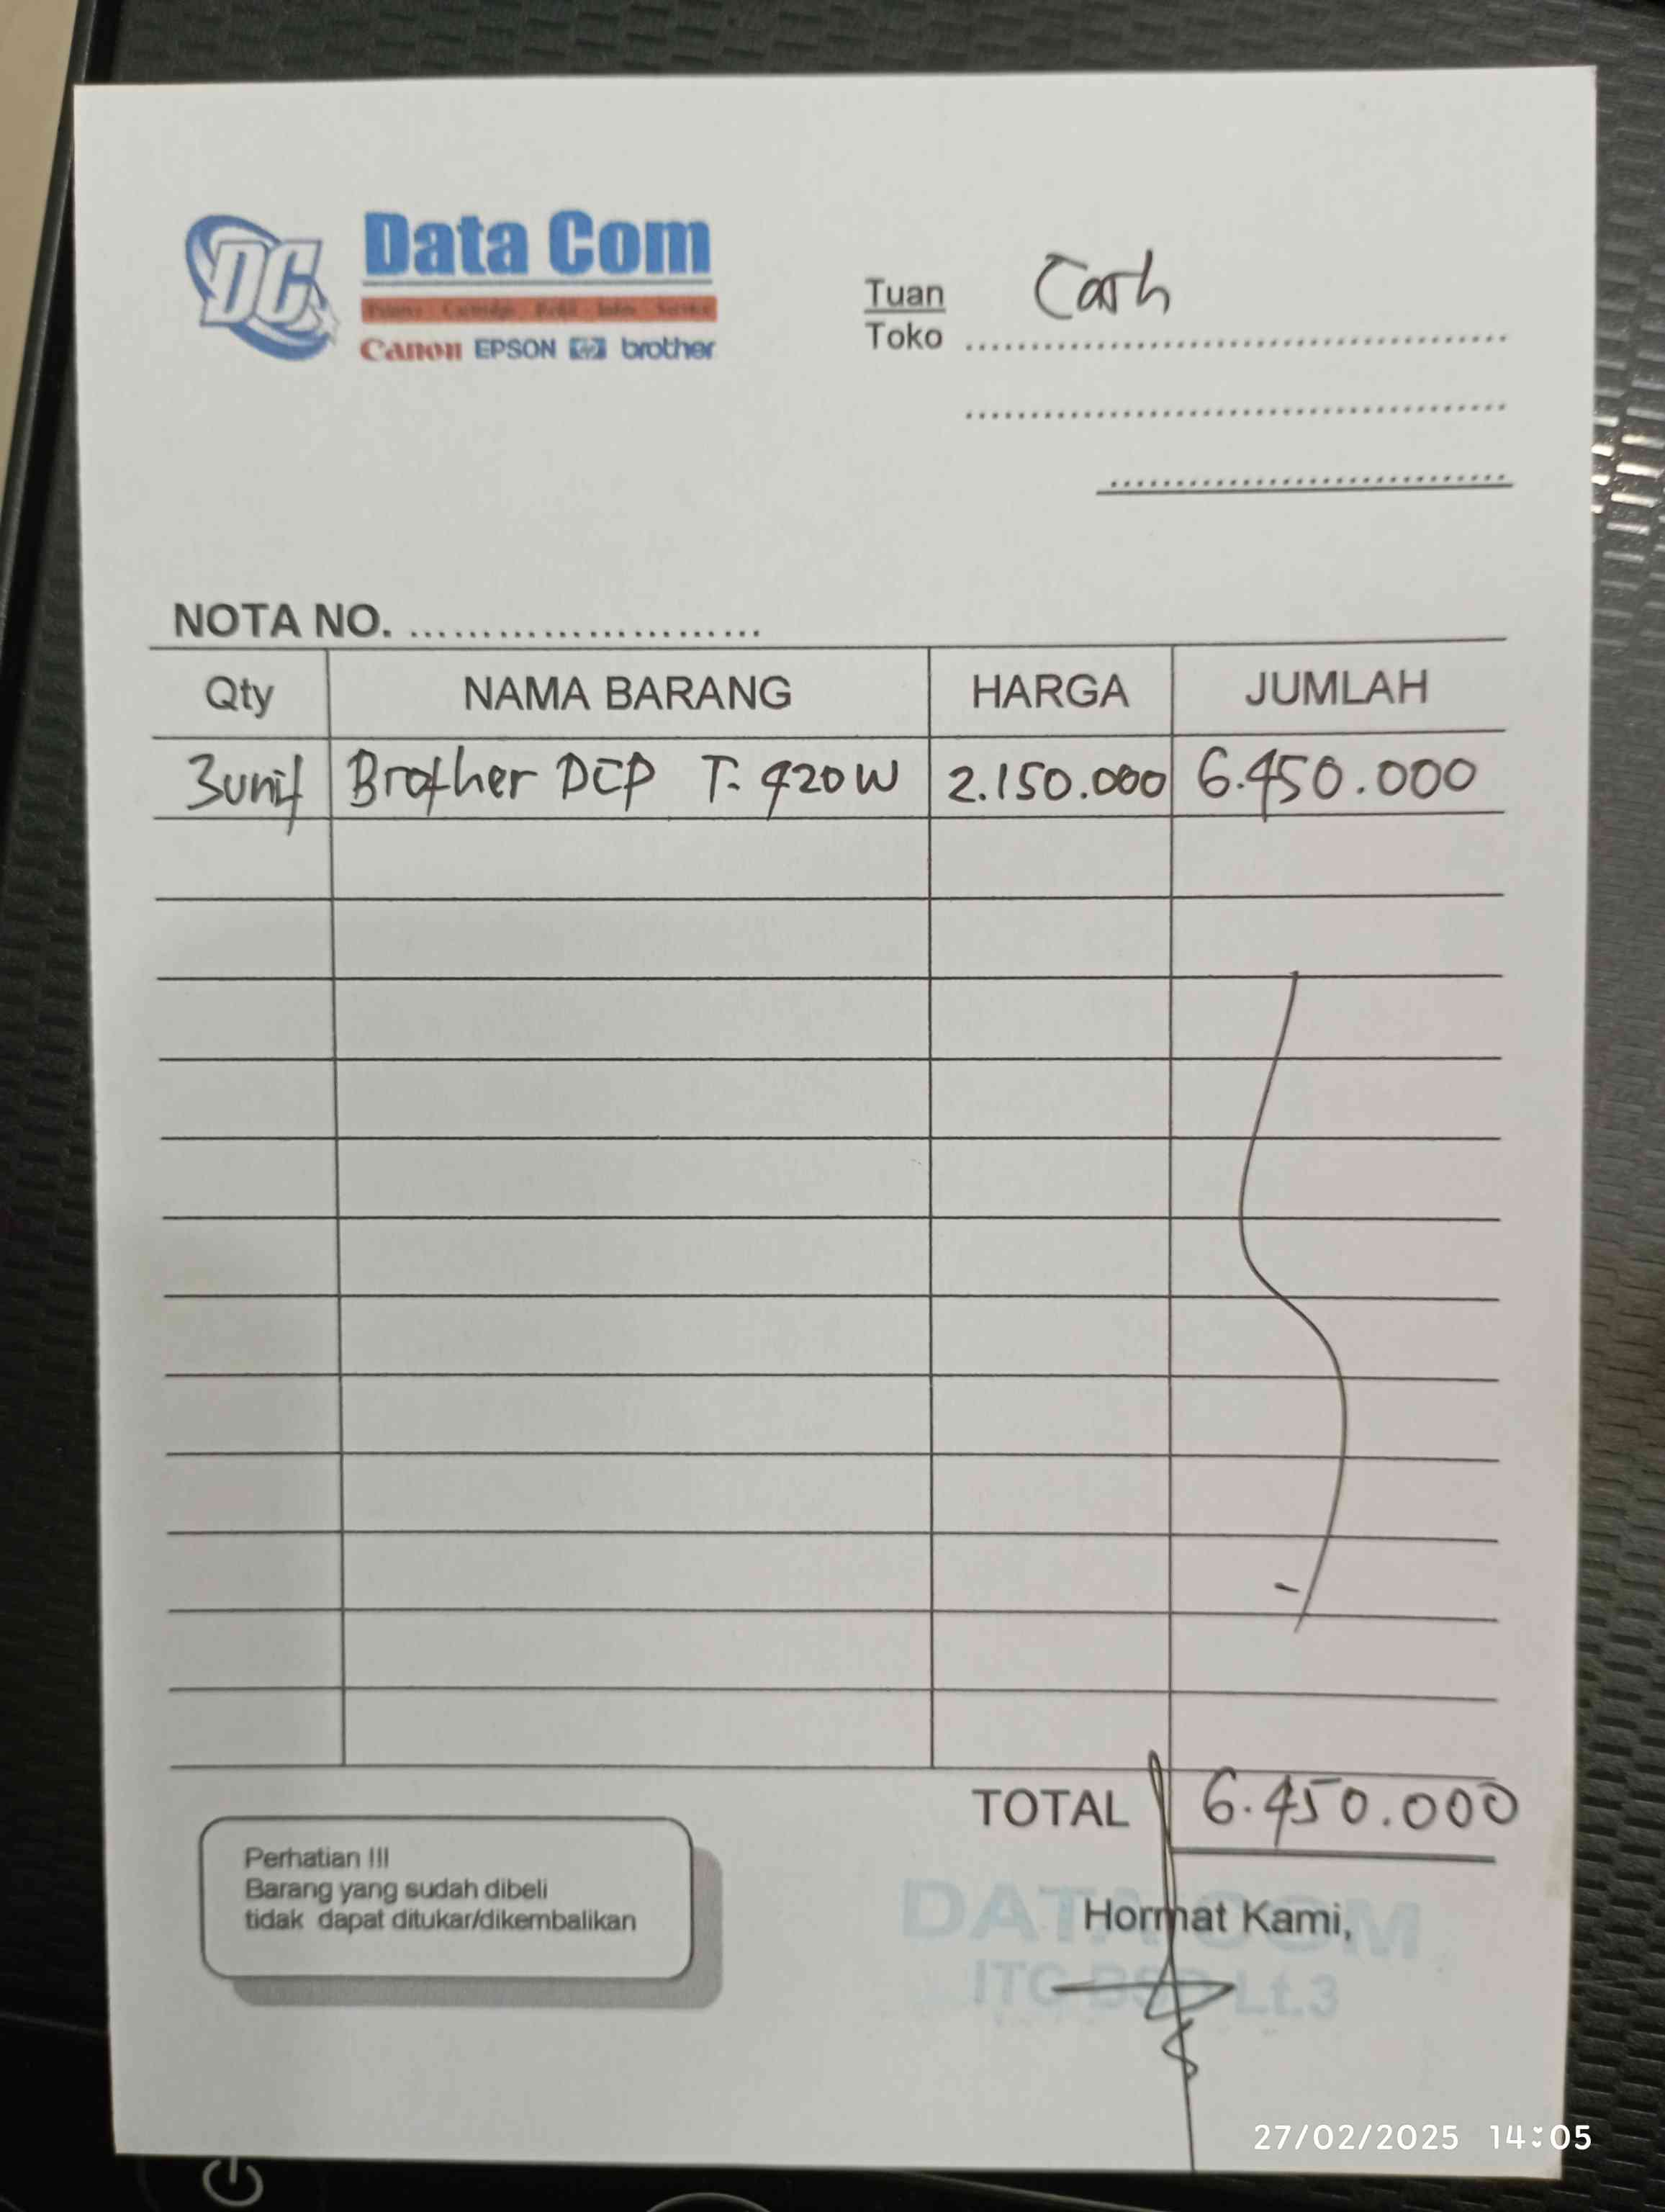 DC Data Com
Canon EPSON hp brother
Tuan Cash
Toko
NOTA NO.
Qty NAMA BARANG HARGA JUMLAH
3unit Brother DCP T. 420W 2.150.000 6.450.000
TOTAL 6.450.000
Perhatian !!!
Barang yang sudah dibeli
tidak dapat ditukar/dikembalikan
Hormat Kami,
DATA COM
ITC BSD Lt.3
27/02/2025 14:05